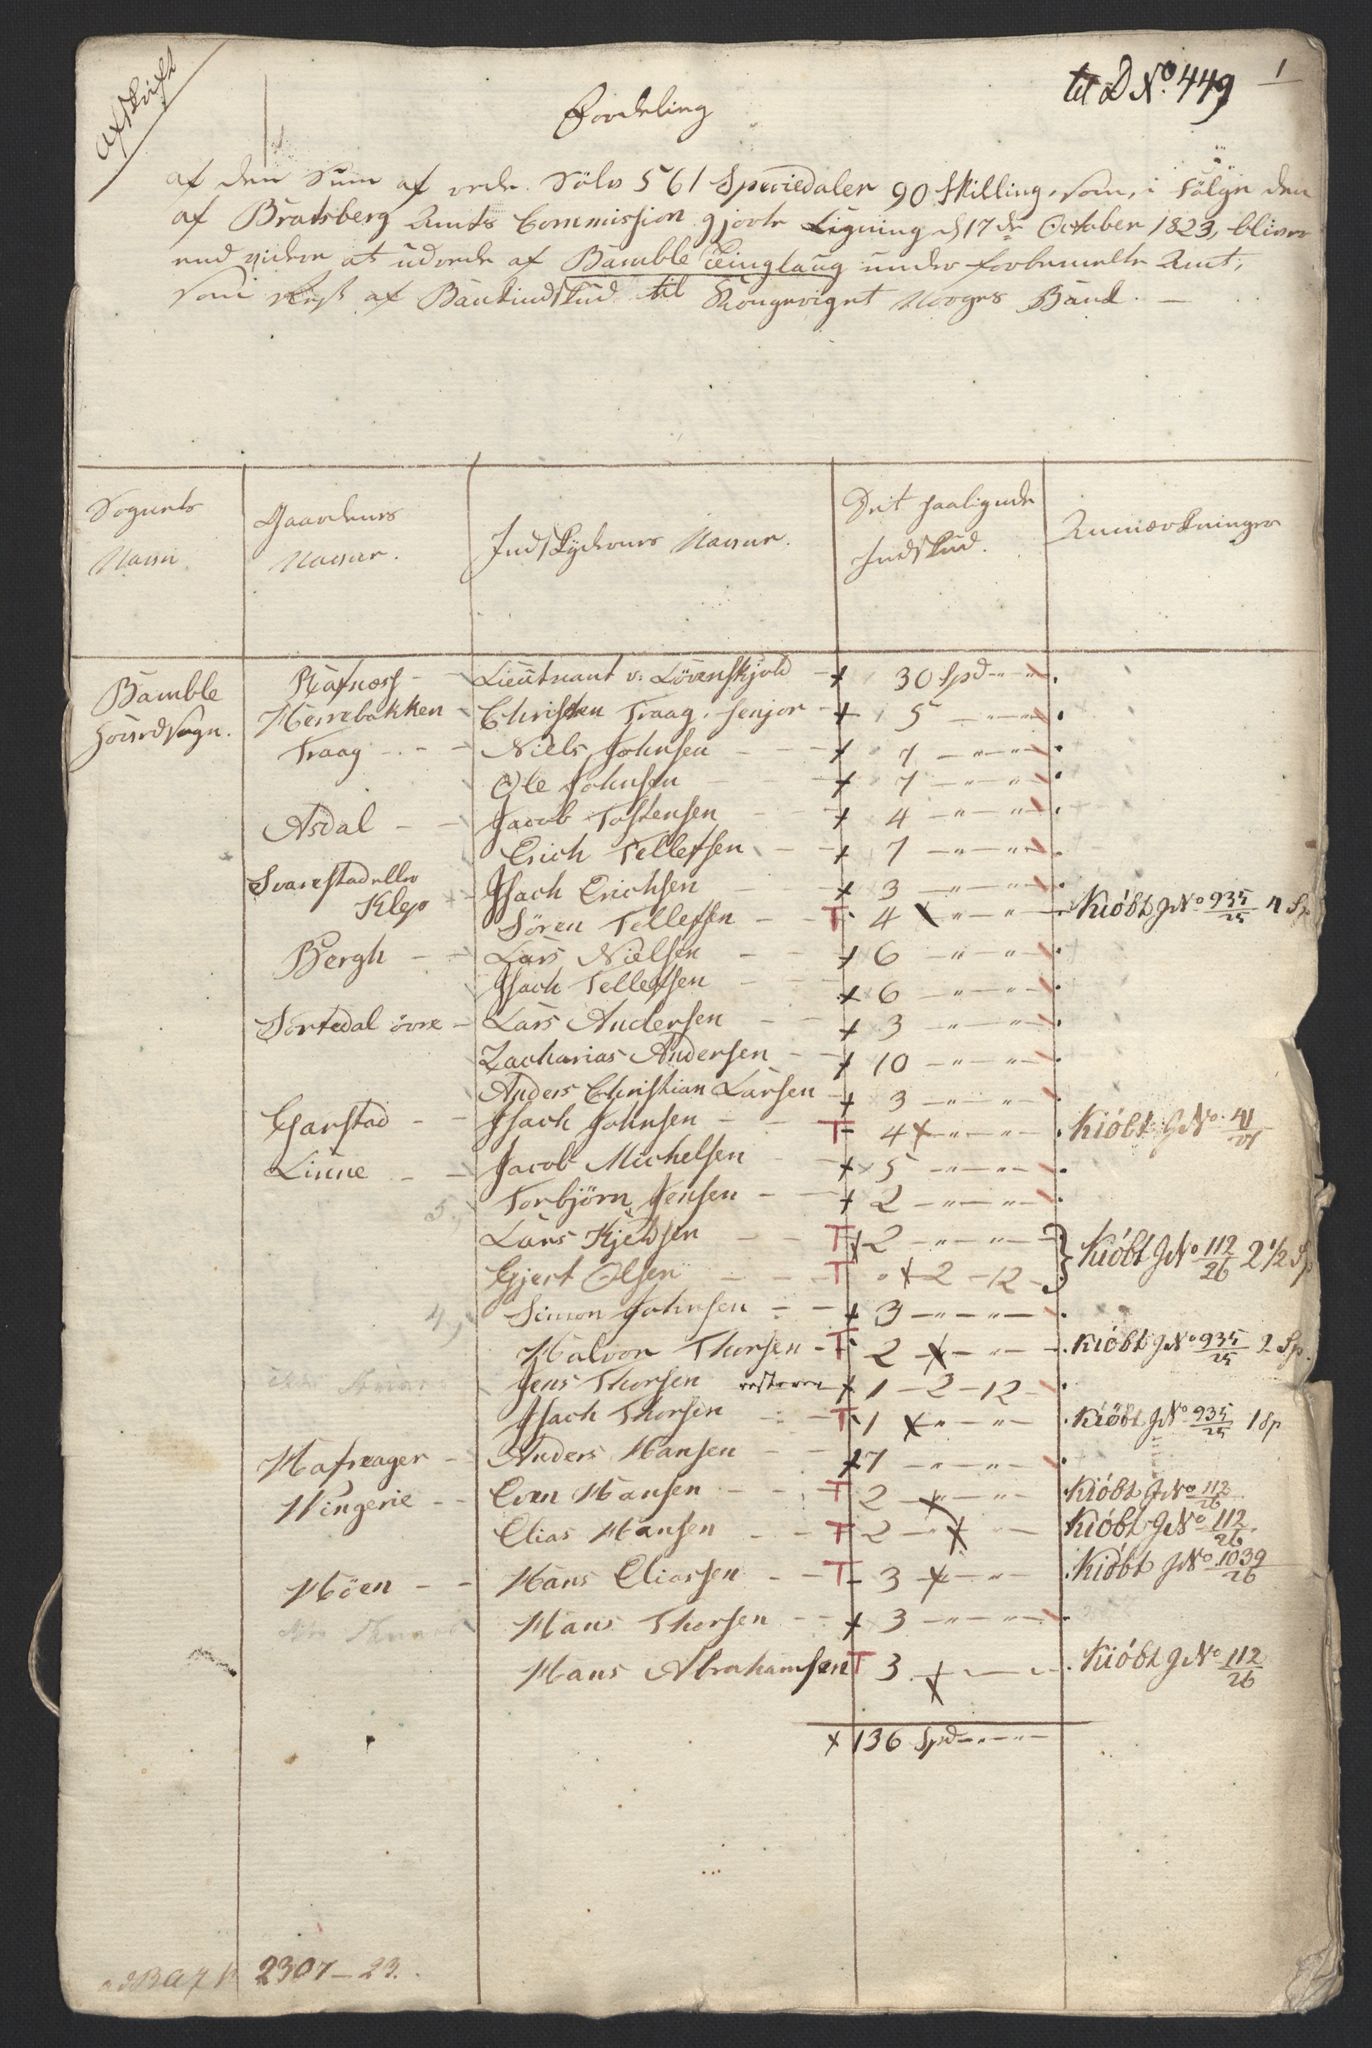 Afskrift
til D No. 449
1
Fordeling
af den Sum af rede Sölv 561 Speciedaler 90 Skilling, som, i Fölge den
af Bratsberg Amts Commission gjorte Ligning d 17de October 1823, bliver
end videre at udrede af Bamble Tinglaug under forbemelte Amt,
som Rest af Bankindskud til Kongeriget Norges Bank. —
Sognets Navn
Gaardenes Navne.
Indskydernes Navne.
Det paalignede Indskud.
Anmærkninger
Bamble Hovedsogn.
Rafness — Lieutnant v: Lövenskjold — + 30 Spd — " — " — .
Herrebakken — Christen Traag, senjor — + 5 — " — " — .
Traag — Niels Johnsen — + 7 — " — " — .
Ole Johnsen — + 7 — " — " — .
Asdal — Jacob Tostensen — + 4 — " — " — .
Erich Tellefsen — + 7 — " — " — .
Svarestad eller Klep — Isach Erichsen — + 3 — " — " — .
Sören Tellefsen — T 4 x " — " — Kiöbt J No 935/25 4 Sp
Bergh — Lars Nielsen — + 6 — " — " — .
Isach Tellefsen — + 6 — " — " — .
Sortedal övre — Lars Andersen — + 3 — " — " — .
Zacharias Andersen — + 10 — " — " — .
Anders Christian Larsen — + 3 — " — " — .
Garstad — Isach Johnsen — T 4 x — " — " — . Kiöbt J No. 41/27
Linne — Jacob Michelsen — + 5 — " — " — .
5, Torbjörn Jensen — + 2 — " — " — .
Lars Kjeldsen — T x 2 — " — " —
Gjert Olsen — T " x 2 — 12 — } Kiöbt J No 112/26 2 1/2 Sp
4, Simon Johnsen — + 3 — " — " — .
Halvor Thorsen — T 2 x — " — . Kiöbt J No 935/25 2 Sp.
Jens Thorsen resterer + 1 — 2 — 12 — .
Isach Thorsen — T 1 x " — " — . Kiöbt J No 935/25 1 Sp
Hafrager — Anders Hansen — + 7 — " — " — .
Hingerie — Even Hansen — T 2 — x " — " — . Kiöbt J No 112/26
Elias Hansen — T 2 — x " — . Kiöbt J No 112/26
Höen — Hans Eliassen — T 3 x — " — . Kiöbt J No 1039/26
Hans Thorsen — + 3 — " — " — .
Hans Abrahamsen T 3 x — — . Kiöbt J No 112/26
x 136 Spd — " — " —
2307 — 23.